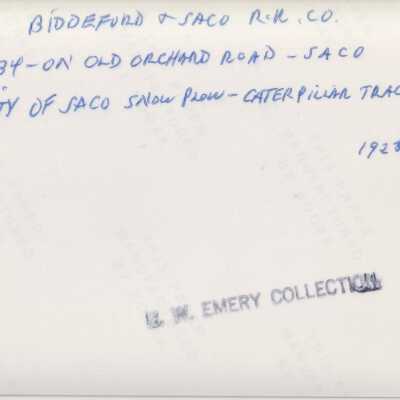 BIDDEFORD & SACO R.R. CO.
34-ON OLD ORCHARD ROAD - SACO
TY OF SACO SNOW PLOW - CATERPILLAR TRAC
192
W. EMERY COLLECTION